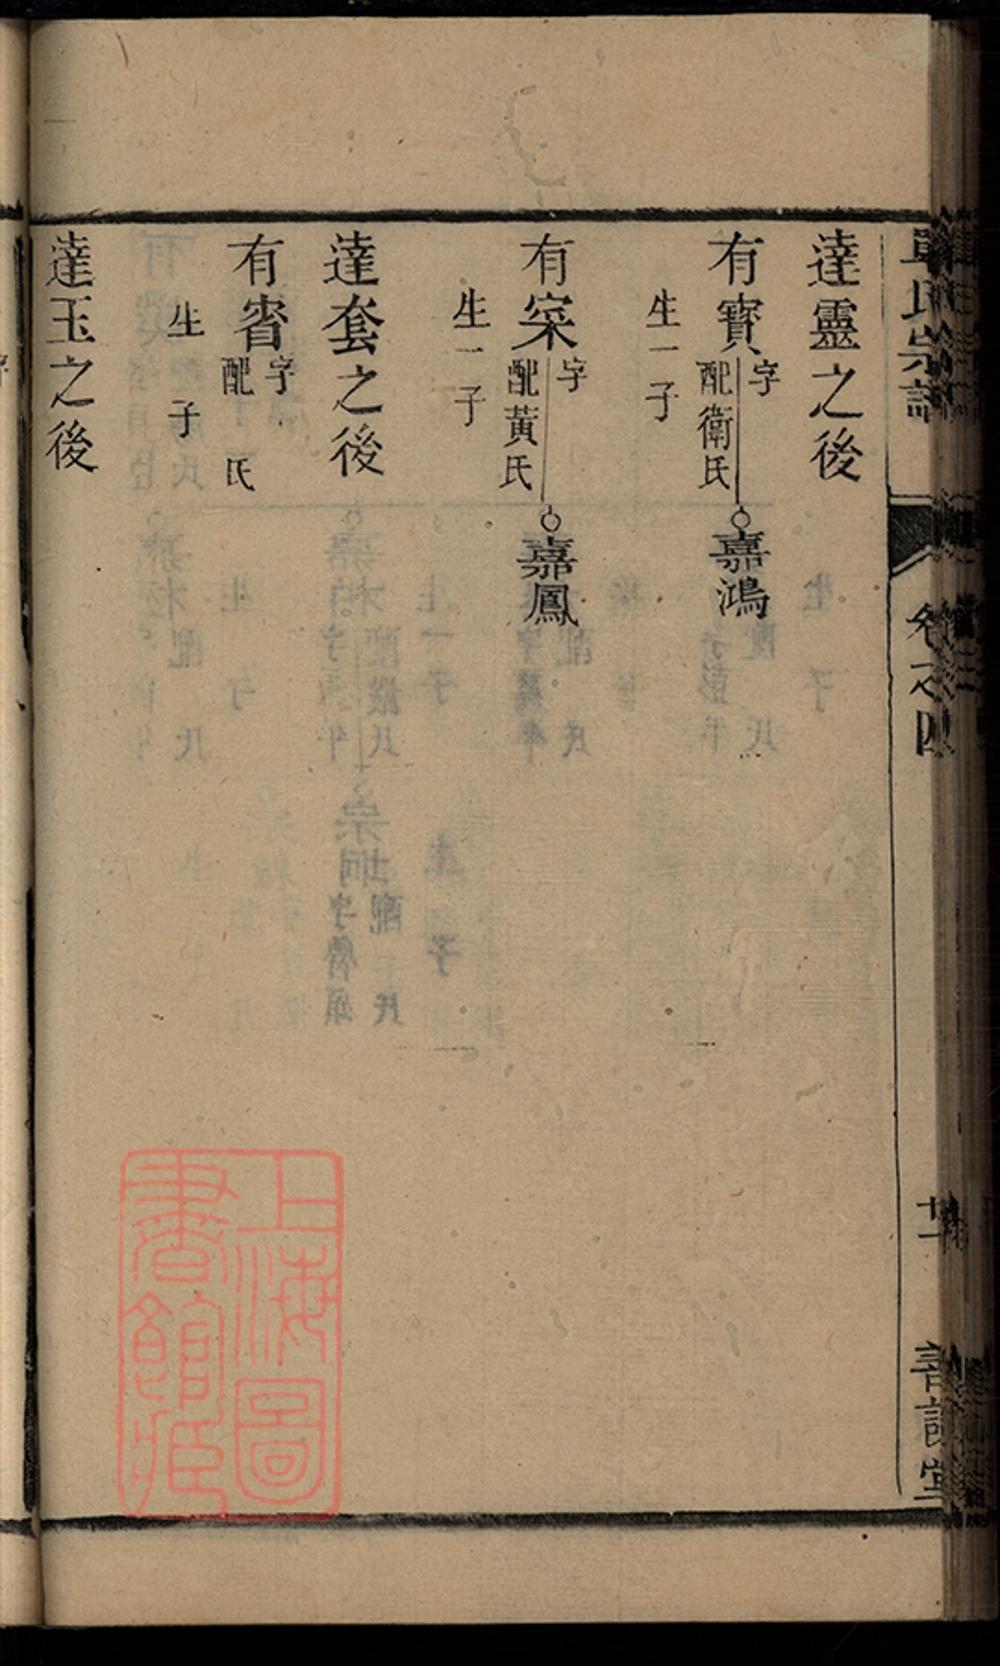 氏宗譜
卷之四
達靈之後
有寳
字
配衛氏
嘉鴻
生一子
有寀
字
配黃氏
嘉鳳
生一子
達套之後
有㫺
字
配 氏
生 子
達玉之後
上海圖
書館藏